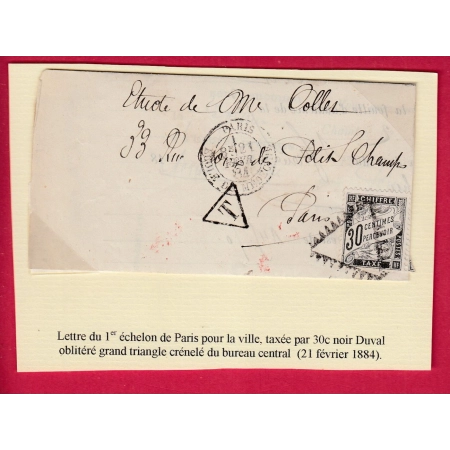 Etude de Me Colles
33 Rue des Petits Champs
Paris
PARIS
21
84
T
CHIFFRE
30 CENTIMES
A PERCEVOIR
POSTES
TAXE
Lettre du 1er échelon de Paris pour la ville, taxée par 30c noir Duval
oblitéré grand triangle crénelé du bureau central (21 février 1884).